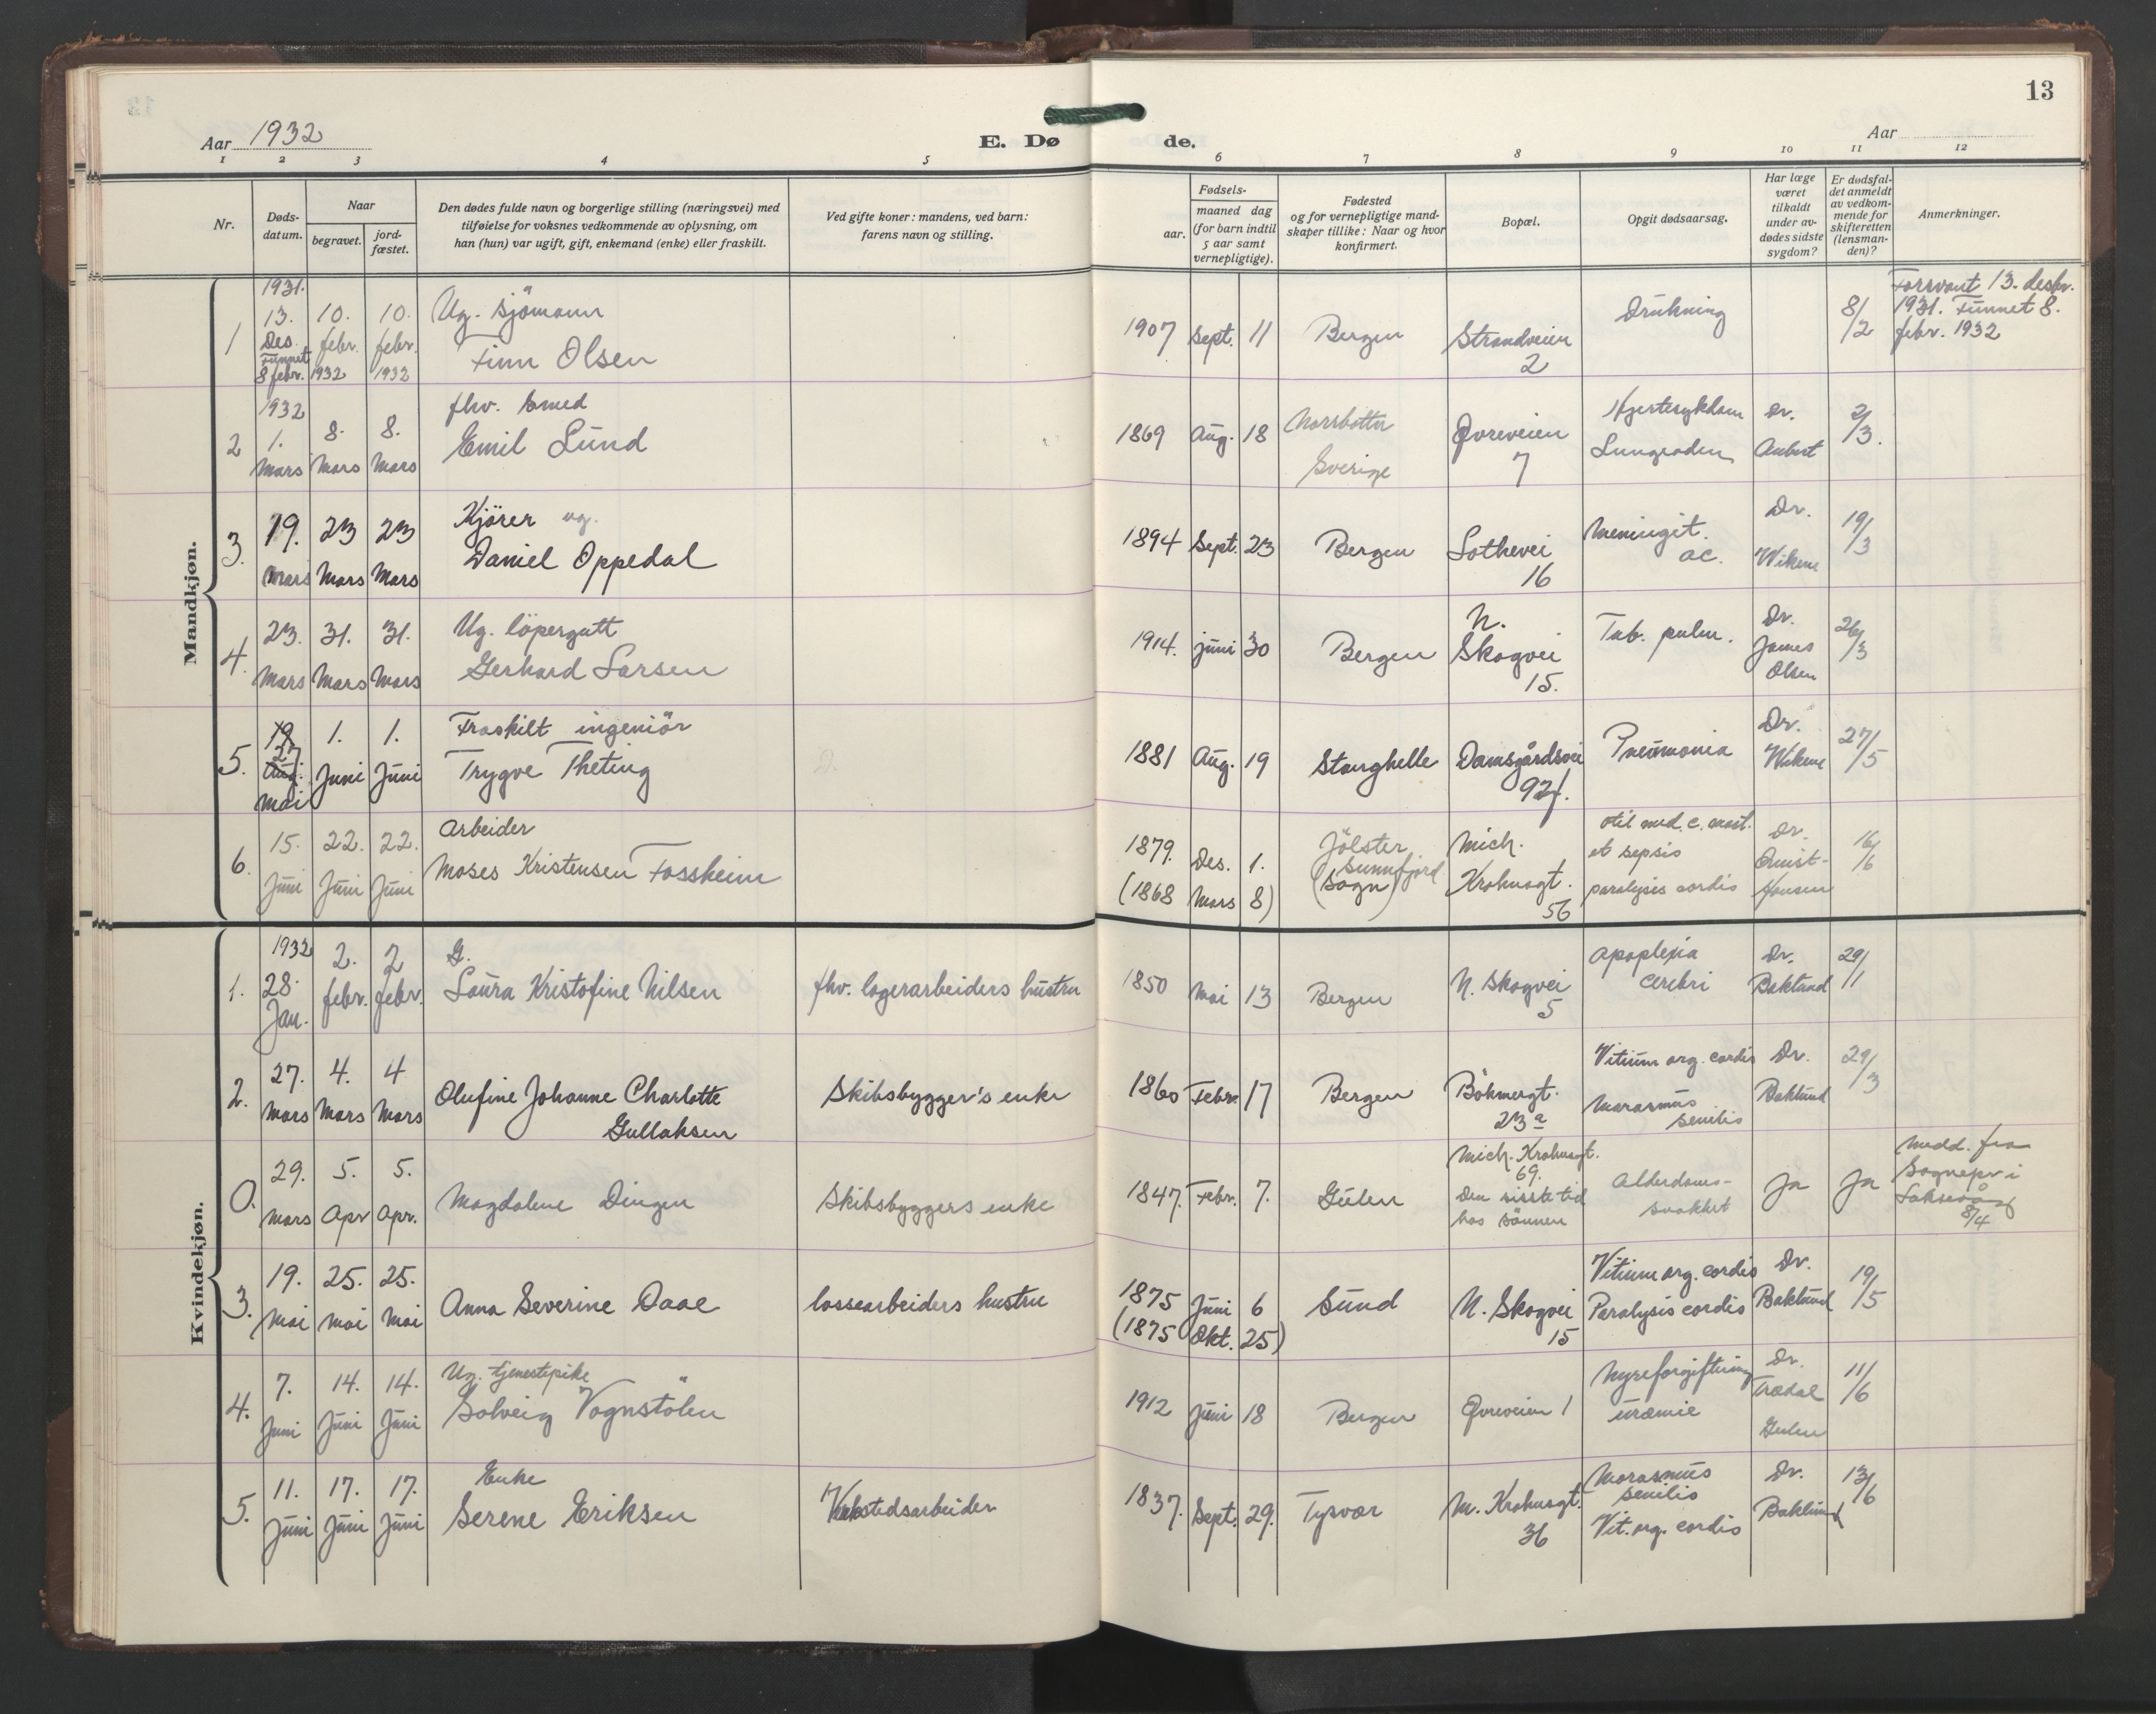 13
Aar 1932
E. Dø de.
Aar
1 2 3 4 5 6 7 8 9 10 11 12
Nr.
Døds-
datum.
Naar
begravet.
jord-
fæstet.
Den dødes fulde navn og borgerlige stilling (næringsvei) med
tilføielse for voksnes vedkommende av oplysning, om
han (hun) var ugift, gift, enkemand (enke) eller fraskilt.
Ved gifte koner: mandens, ved barn:
farens navn og stilling.
Fødsels-
aar.
maaned dag
(for barn indtil
5 aar samt
vernepligtige).
Fødested
og for vernepligtige mand-
skaper tillike: Naar og hvor
konfirmert.
Bopæl.
Opgit dødsaarsag.
Har læge
været
tilkaldt
under av-
dødes sidste
sygdom?
Er dødsfal-
det anmeldt
av vedkom-
mende for
skifteretten
(lensman-
den)?
Anmerkninger.
Mandkjøn.
1
1931.
13.
Des.
Funnet
8 febr.
10.
febr.
1932
10.
febr.
1932
Ug. sjömann
Finn Olsen
1907 Sept. 11
Bergen
Strandveien
2
Drukning
8/2
Forsvant 13. desbr.
1931. Funnet 8.
febr. 1932
2
1932
1.
Mars
8.
Mars
8.
Mars
fhv. Smed
Emil Lund
1869 Aug. 18
Norrbotten
Sverige
Øvreveien
7
Hjertesykdom
Lungeødem
Dr.
Aubert
2/3.
3.
19.
Mars
23
Mars
23
Mars
Kjører ug.
Daniel Oppedal
1894 Sept. 23
Bergen
Lothevei
16
Meningit.
ac.
Dr.
Wikene
19/3
4.
23.
Mars
31.
Mars
31.
Mars
Ug. löpergutt
Gerhard Larsen
1914. juni 30
Bergen
N.
Skogvei
15.
Tub. pulm.
Dr.
James
Olsen
26/3
5.
19
27
Aug.
Mai
1.
Juni
1.
Juni
Fraskilt ingeniör
Trygve Theting
1881 Aug. 19
Stanghelle
Damsgårdsvei
92
Pneumonia
Dr.
Wikene
27/5
6.
15.
Juni
22.
Juni
22.
Juni
Arbeider
Moses Kristensen Fossheim
1879. Des. 1.
(1868 Mars 8)
Jölster
Sunnfjord
(Sogn)
Mich.
Krohnsgt.
56
Otit med. c. mast.
et sepsis
paralysis cordis
Dr.
Quist-
Hansen
16/6
Kvindekjøn.
1.
1932
28.
Jan.
2.
febr.
2
febr.
G.
Laura Kristofine Nilsen
fhv. lagerarbeiders hustru
1850 Mai 13
Bergen
N. Skogvei
5
Apoplexia
cerebri
Dr.
Baklund
29/1
2.
27.
Mars
4.
Mars
4
Mars
Olufine Johanne Charlotte
Gullaksen
Skibsbygger's enke
1860 Febr. 17
Bergen
Böhmergt.
23a
Vitium org. cordis
Marasmus
senilis
Dr.
Baklund
29/3
0.
29.
Mars
5.
Apr
5.
Apr.
Magdalene Dingen
Skibsbyggers enke
1847. Febr. 7.
Gulen
Mich. Krohnsgt.
69.
Den sisste tid
hos sönnen
Alderdoms-
svakhet
Ja
Ja
Medd. fra
Sognepr i
Laksevåg
8/4
3.
19.
Mai
25.
Mai
25.
Mai
Anna Severine Daae
lossearbeiders hustru
1875 Juni 6
(1875 Okt. 25)
Sund
N. Skogvei
15
Vitium org. cordis
Paralysis cordis
Dr.
Baklund
19/5
4.
7.
Juni
14.
Juni
14.
Juni
Ug. tjenestepike
Solveig Vognstölen
1912 Juni 18
Bergen
Øvreveien 1
Nyreforgiftning
Uræmie
Dr.
Trædal
Gulen
11/6
5.
11.
Juni
17.
Juni
17.
Juni
Enke
Serene Eriksen
Verkstedsarbeider
1837. Sept. 29.
Tysvær
M. Krohnsgt.
36
Marasmus
senilis
Vit. org. cordis
Dr.
Baklund
13/6